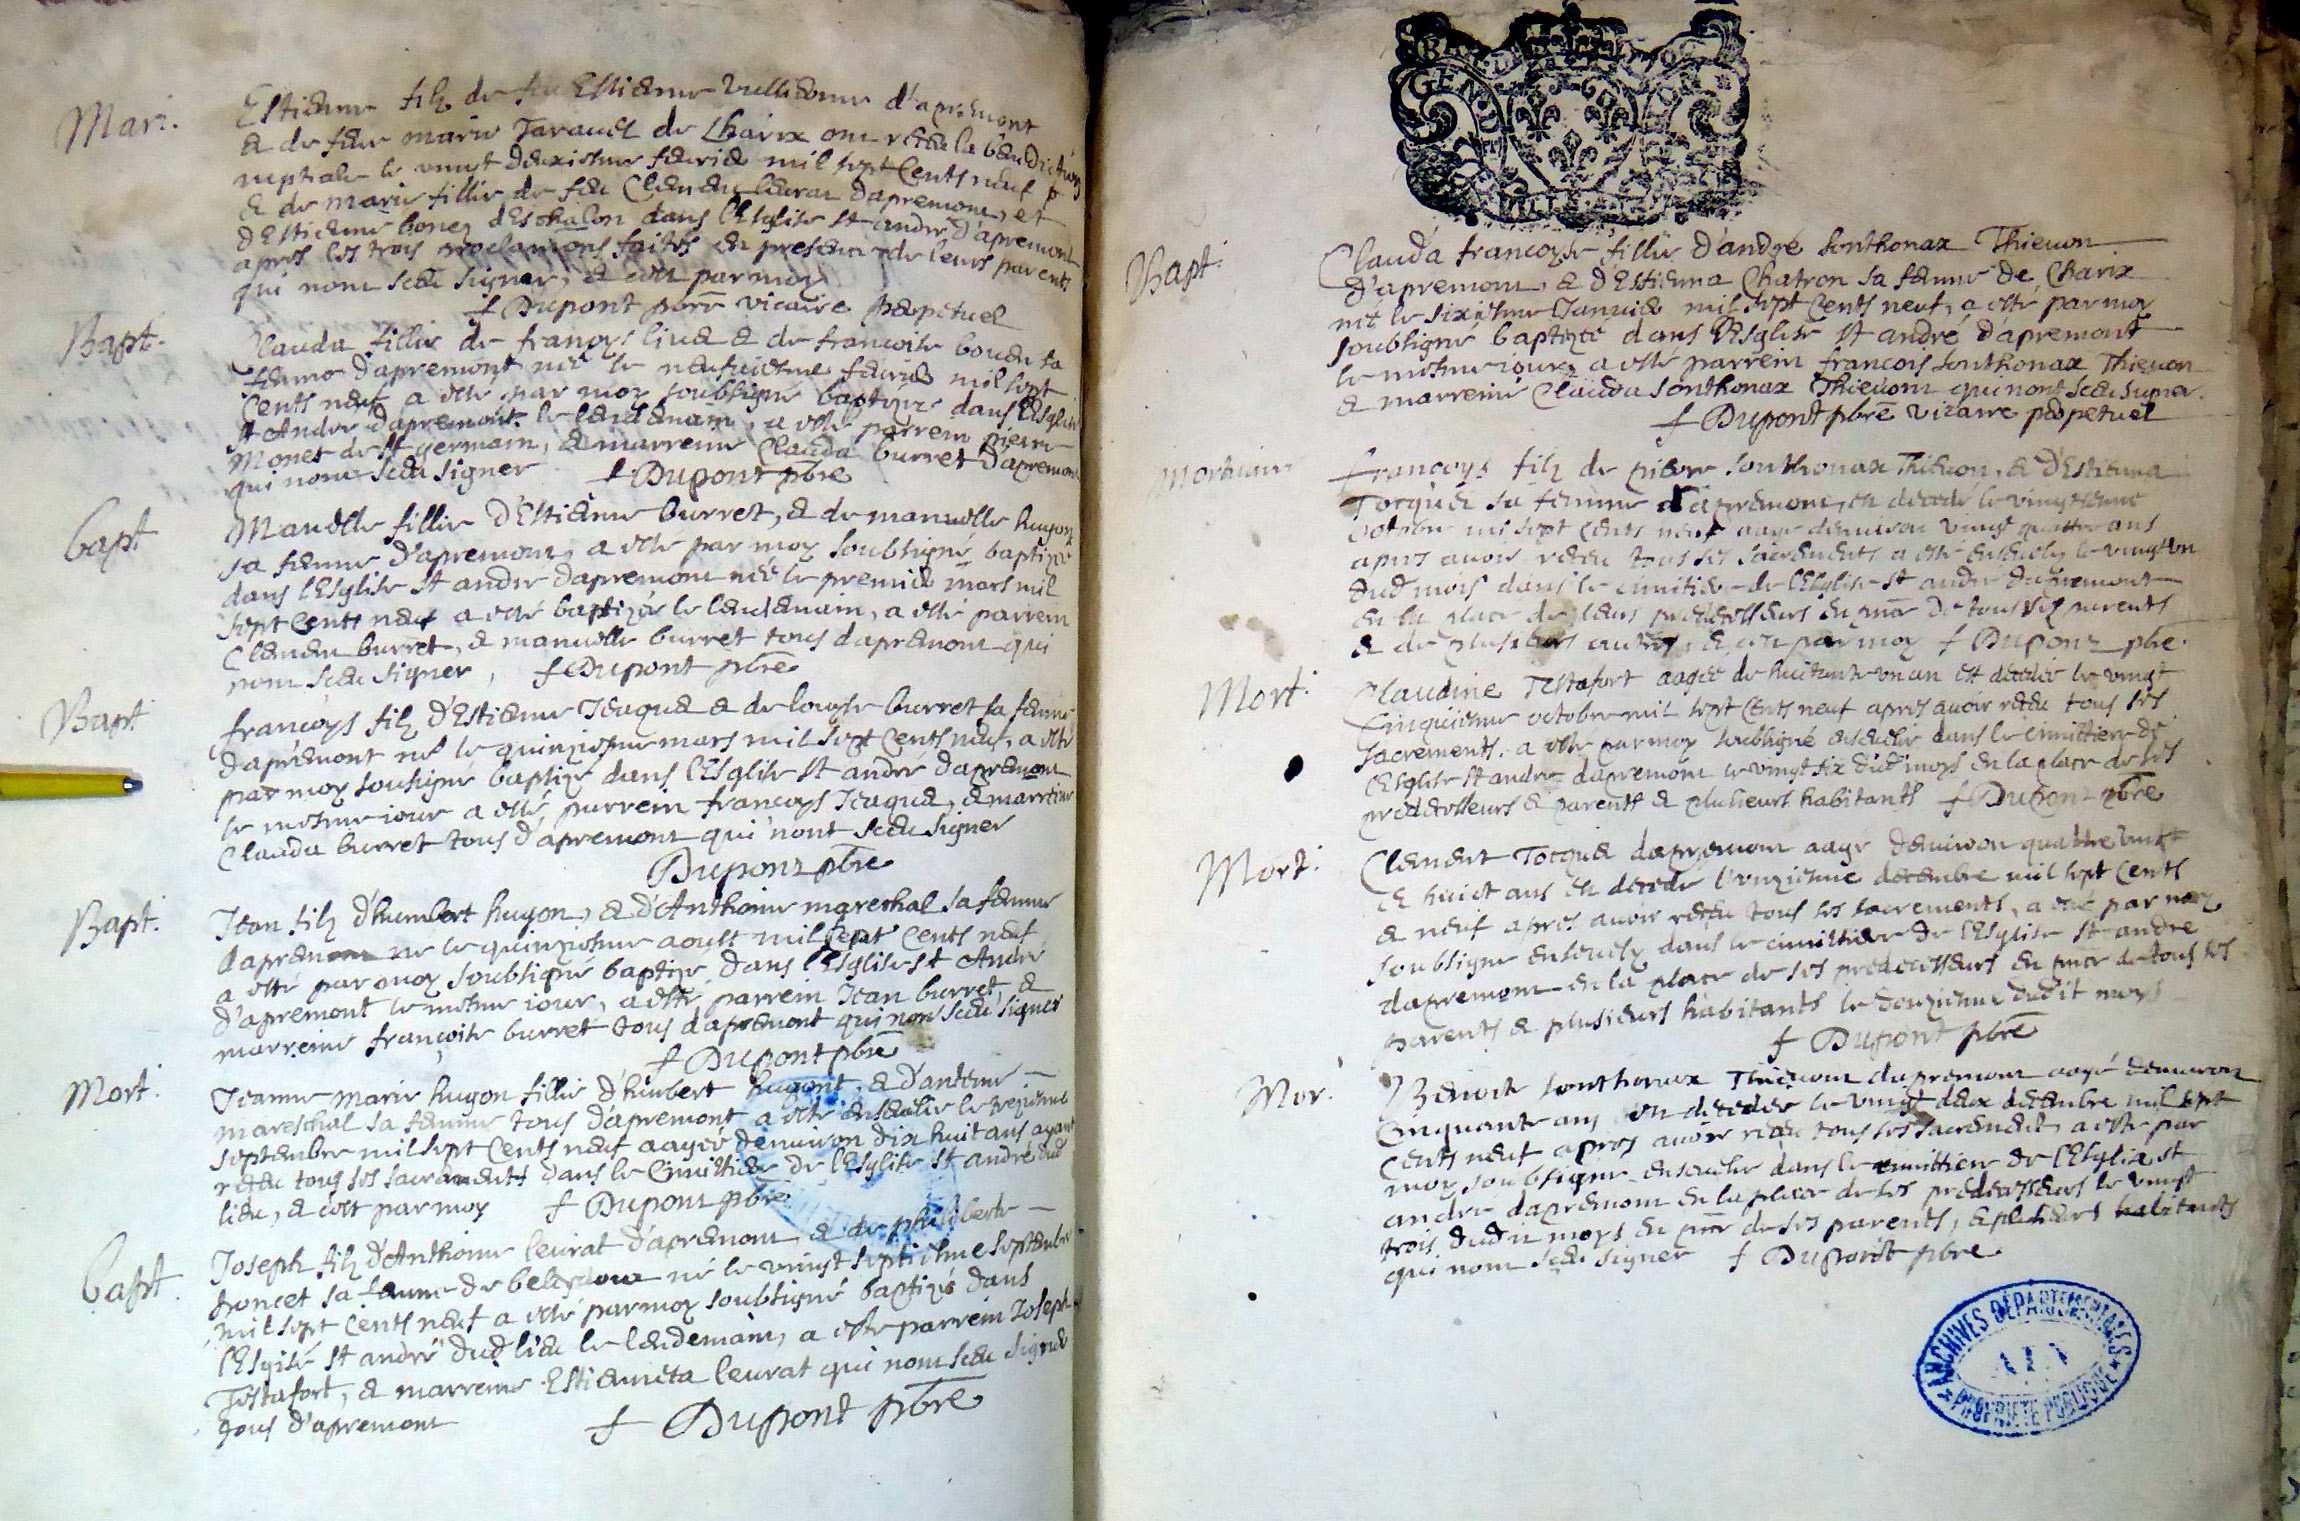 Mari.
Estienne filz de feu Estienne Vullierme d'apremont
& de feue marie Taravel de Charix ont receu la benediction
nuptiale le vingt deuxiesme feurier mil sept Cents neuf
& de marie fillie de feu Clement leurat dapremont, et
d'Estienne bonez deschalon dans l'Esglise st andre d'apremont
apres les trois proclamons faites en presence de leurs parents
qui nont sceu signer, & cest par moy
+ Dupont pbre vicaire perpetuel
Bapt.
Clauda fillie de françoys liuet & de francoise boude sa
femme dapremont née le neufuiesme feurier mil sept
Cents neuf a esté par moy soubsigné baptizée dans l'Esglise
st Andre dapremont le lendemain, a esté parrein pierre
Monet de st germain, & marreine Clauda burret d'apremont
qui nont sceu signer + Dupont pbre
bapt
Manuelle fillie d'Estienne burret, & de manuelle hugon
sa femme d'apremont, a esté par moy soubsigné baptizée
dans l'Esglise st andre dapremont née le premier mars mil
sept Cents neuf a esté baptizée le lendemain, a esté parrein
Clement burret, & manuelle burret tous dapremont qui
nont sceu signer, + Dupont pbre
Bapt
francoys filz d'Estienne Jcaquet & de louyse burret sa femme
d'apremont né le quinziesme mars mil sept Cents neuf, a esté
par moy soubsigné baptizé dans l'Esglise st andré dapremont
le mesme iour a esté, parrein francoys Jcaquet, & marreine
Clauda burret tous d'apremont qui n'ont sceu signer
Dupont pbre
Bapt.
Jean filz d'humbert hugon, & d'Anthoine mareschal sa femme
dapremont né le quinziesme aoust mil sept Cents neuf
a esté par moy soubsigné baptizé, dans l'Esglise st André
d'apremont le mesme iour, a esté parrein Jean burret, &
marreine françoise burret tous dapremont qui nont sceu signer
+ Dupont pbre
Mort.
Jeanne marie hugon fillie d'humbert hugont, & d'antoine
mareschal sa femme tous d'apremont a esté ensevelie le treziesme
septembre mil sept Cents neuf aagée denuiron dix huit ans ayant
receu tous ses sacrements dans le Cimittiere de l'Esglise st andre dud
lieu, & cest par moy + Dupont pbre
bapt.
Joseph filz d'Anthoine leurat d'apremont & de philiberte
poncet sa femme de belleydoux né le vingt septiesme septembre
mil sept Cents neuf a esté par moy soubsigné baptizé dans
l'Esglise st andré dud lieu le lendemain, a esté parrein Joseph
Testafort, & marreine Estienneta leurat qui nont sceu signer
tous d'apremont + Dupont pbre
GEN DE
Bapt.
Clauda francoyse fillie d'andré sonthonax Thieuon
d'apremont, & d'Estienna Chatron sa femme de Charix
née le sixiesme Januier mil sept Cents neuf, a esté par moy
soubsigné baptizée dans l'Esglise st andré d'apremont
le mesme iour, a esté parrein francois sonthonax Thieuon
& marreine Clauda sonthonax Thieuon qui nont sceu signer.
+ Dupont pbre vicaire perpetuel
Mortuaire
francoys filz de pierre sonthonax Thieuon, & d'Estienna
Tocquet sa femme d'apremont, est decedé le vingtiesme
octobre mil sept Cents neuf aagé denuiron vingt quattre ans
apres auoir receu tous ses sacrements a esté ensevely le vingt un
dud mois dans le cimitiere de l'Esglise st andre dapremont
en la place de leurs predecesseurs en pnce de tous ses parents
& de plusieurs autres, & cest par moy + Dupont pbre.
Mort.
Claudine Testafort aagée de huitante un an est decedée le vingt
Cinquiesme octobre mil sept Cents neuf apres auoir receu tous ses
sacrements. a esté par moy soubsigné ensevelie dans le cimittiere de
l'Esglise st andre dapremont le vingt six dud moys en la place de ses
predecesseurs & parents & plusieurs habitants + Dupont pbre
Mort.
Clement Tocquet dapremont aagé denuiron quattre vingt
et huict ans est decedé l'unzieme decembre mil sept Cents
& neuf apres auoir receu tous ses sacrements, a esté par moy
soubsigné ensevely dans le cimittiere de l'Esglise st andre
dapremont en la place de ses predecesseurs en pnce de tous ses
parents & plusieurs habitants le douzieme dudit moys
+ Dupont pbre
Mor.
Benoite sonthonax Thieuont dapremont aagé denuiron
Cinquante ans est decedée le vingt deux decembre mil sept
Cents neuf apres auoir receu tous ses sacrements, a esté par
moy soubsigné ensevelie dans le cimittiere de l'Esglise st
andre dapremont en la place de ses predecesseurs le vingt
trois dudit moys en pnce de ses parents, & plusieurs habitants
qui nont sceu signer + Dupont pbre
ARCHIVES DÉPARTEMENTALES
AIN
PROPRIÉTÉ PUBLIQUE